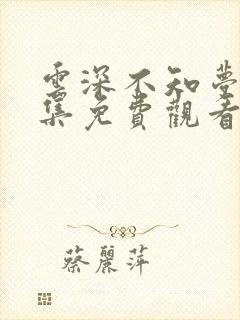 雲深不知夢
集免費觀看
蔡麗萍